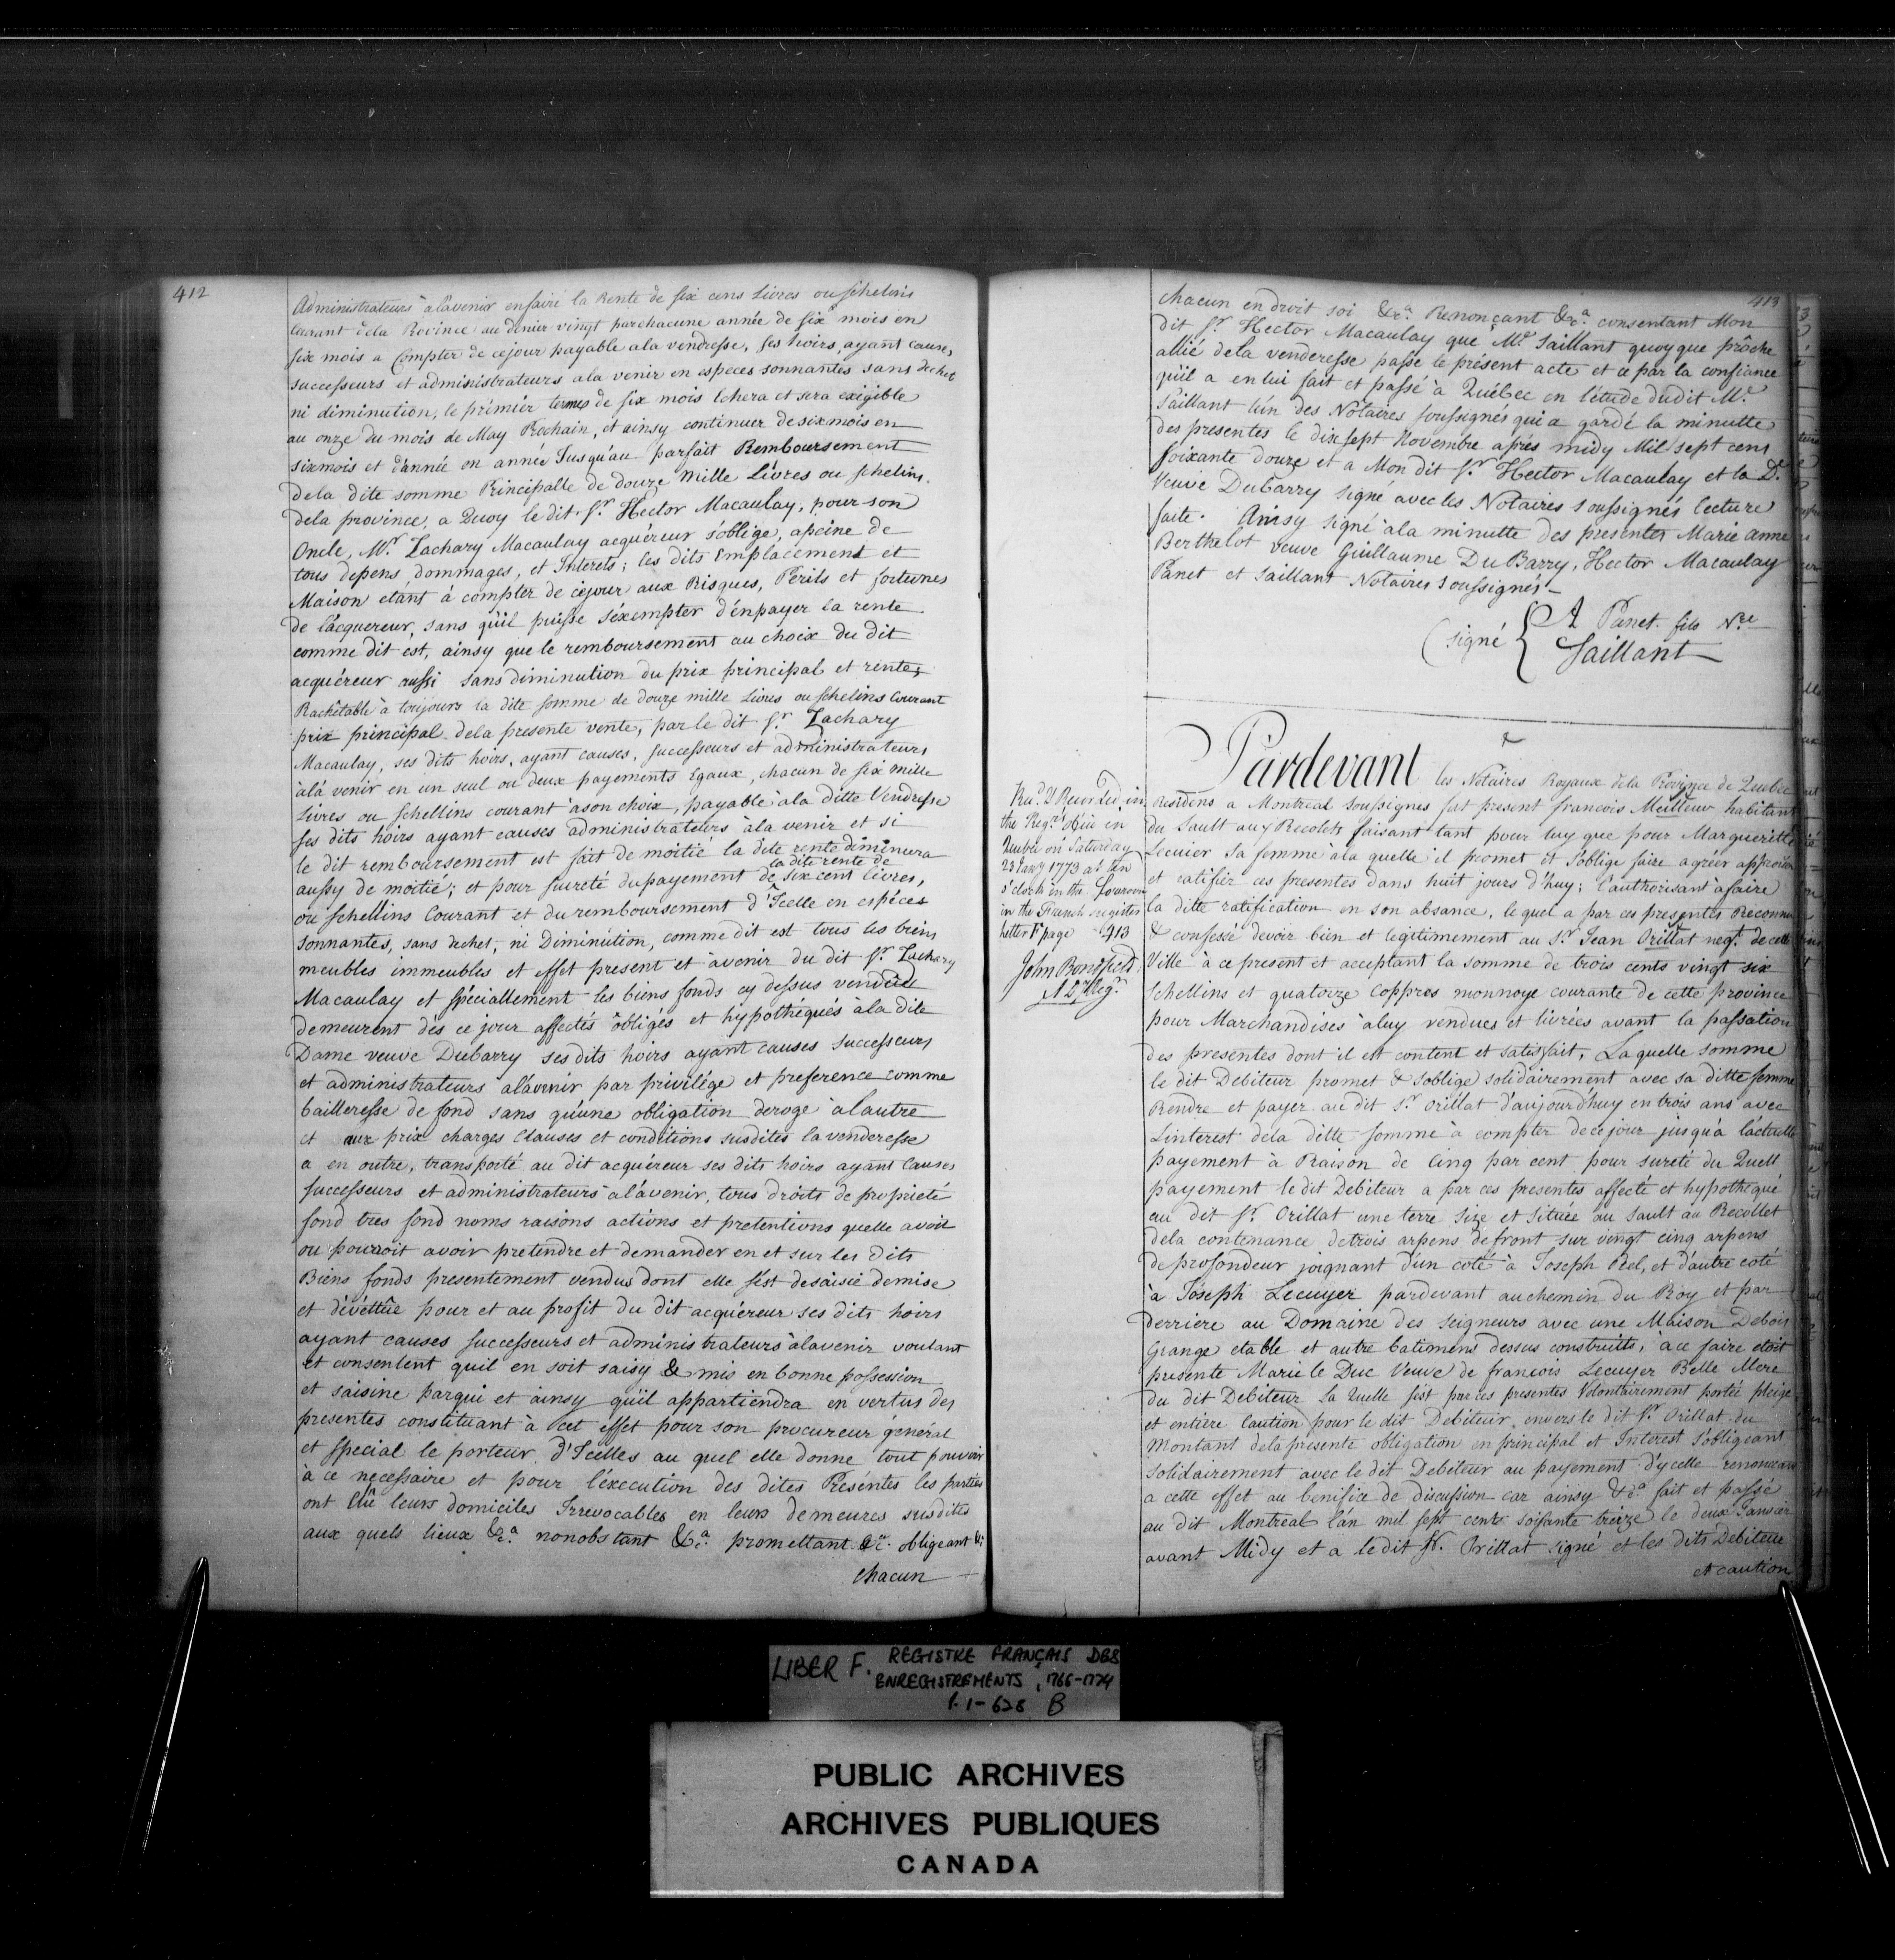 412
Administrateurs à l'avenir en faire la Rente de six cens Livres ou schelins
Courant dela Province au denier vingt par chacune année de six mois en
six mois a Compter de ce jour payable a la vendresse, ses hoirs, ayant cause,
successeurs et administrateurs a la venir en especes sonnantes sans dechet
ni diminution, le prémier termes de six mois Echera et sera exigible
au onze du mois de May Prochain, et ainsy continuer de six mois en
six mois et d'année en année Jusqu'au parfait Remboursement
dela dite somme Principalle de douze Mille Livres ou schelins
dela province, a Quoy le dit Sr. Hector Macaulay, pour son
Oncle, Mr. Zachary Macaulay acquéreur s'oblige, apeine de
tous depens, dommages, et Interets; les dits Emplacement et
Maison etant à compter de ce jour aux Risques, Périls et fortunes
de l'acquereur, sans qu'il puisse s'éxempter d'en payer la rente
comme dit est, ainsy que le remboursement au choix du dit
acquéreur aussi sans diminution du prix principal et rentes
Rachêtable à toujours la dite somme de douze mille Livres ou schelins Courant
prix principal dela presente vente, par le dit Sr. Zachary
Macaulay, ses dits hoirs, ayant causes, successeurs et administrateurs
àlà venir en un seul ou deux payements Egaux, chacun de six mille
Livres ou schellins courant à son choix, payable à la ditte Vendresse
ses dits hoirs ayant causes administrateurs à la venir et si
le dit remboursement est fait de moitié la dite rente diminuera
la dite rente de
aussy de moitié; et pour sureté du payement de six cent livres,
ou schellins Courant et du remboursement d'Icelle en espéces
sonnantes, sans dechet, ni Diminution, comme dit est tous les biens
meubles immeubles et effet present et àvenir du dit Sr. Zachary
Macaulay et spéciallement les biens fonds cy dessus vendue
demeurent dès ce jour affectés obligés et hypothéqués à la dite
Dame veuve Dubarry ses dits hoirs ayant causes successeurs
et administrateurs àlavenir par privilége et preference comme
bailleresse de fond sans qu'une obligation deroge à l'autre
et aux prix charges Clauses et conditions susdites la venderesse
a en outre, transporté au dit acquéreur ses dits hoirs ayant Causes
successeurs et administrateurs à l'avenir, tous droits de proprieté
fond tres fond noms raisons actions et pretentions quelle avoit
ou pouroit avoir pretendre et demander en et sur les dits
Biens fonds presentement vendus dont elle s'est desaisie demise
et dévéttûe pour et au profit du dit acquéreur ses dits hoirs
ayant causes successeurs et administrateurs àlavenir voulant
et consentent quil en soit saisy & mis en bonne possession
et saisine par qui et ainsy qu'il appartiendra en vertus des
presentes constituant à cet effet pour son procureur général
et special le porteur d'Icelles au quel elle donne tout pouvoir
à ce necessaire et pour l'éxecution des dites Présentes les parties
ont Elû leurs domiciles Irrevocables en leurs demeures susdites
aux quels lieux &ca. nonobstant &ca. promettant &ca. obligeant &c
chacun
413
chacun en droit soi &ca. Renonçant &ca. consentant Mon
dit Sr. Hector Macaulay que Me. Saillant quoy que prôche
allié dela venderesse passe le présent acte et ce par la confiance
qu'il a en lui fait et passé à Québec en l'étude du dit Me.
Saillant l'ún des Notaires soussignés qui a gardé la minutte
des presentes le dix sept Novembre aprés midy Mil sept cens
soixante douze et a Mon dit Sr. Hector Macaulay et la De.
Veuve Dubarry signé avec les Notaires soussignés lecture
faite. Ainsy signé à la minutte des presentes Marie anne
Berthelot veuve Guillaume Du Barry, Hector Macaulay
Panet et Saillant Notaires Soussignés
(signé { A Panet fils Nre
Saillant
Rec.d & Recorded, in
the Regrs. Office in
Quebec on Saturday
23 Jany 1773 at ten
o'clock in the forenoon
in the French register
Letter F page 413
John Bondfield
A Dy. Regr.
Pardevant les Notaires Royaux dela Province de Quebec
Residens a Montreal soussignés fut present francois Meilleur habitant
du Sault aux Recolets faisant tant pour luy que pour Marguerite
Lecuier sa femme à la quelle il promet et s'oblige faire agréer approuver
et ratifier ces presentes dans huit jours d'huy; l'authorisant à faire
la ditte ratification en son absance, lequel a par ces presentes Reconnu
& confessé devoir bien et legitimement au Sr. Jean Orillat negt. de cette
Ville à ce present et acceptant la somme de trois cents vingt six
Schellins et quatorze Coppros monnoye courante de cette province
pour Marchandises à luy vendues et livrées avant la passation
des presentes dont il est content et satisfait, Laquelle somme
le dit Debiteur promet & soblige solidairement avec sa ditte femme
Rendre et payer au dit Sr. Orillat d'aujourdhuy en trois ans avec
Linterest dela ditte somme à compter de ce jour jusqu'à láctuelle
payement à Raison de Cinq par cent pour sureté du Quell
payement le dit Debiteur a par ces presentes affecté et hypothequé
au dit Sr. Orillat une terre size et Située au Sault au Recollet
dela contenance de trois arpens de front sur vingt cinq arpens
de profondeur joignant d'un coté à Joseph Edel, et d'autre coté
à Joseph Lecuyer pardevant au chemin du Roy et par
derriere au Domaine des Seigneurs avec une Maison Debois
Grange etable et autre batimens dessus construitts, à ce faire etoit
presente Marie le Duc Veuve de francois Lecuyer Belle Mere
du dit Debiteur La Quelle s'est par ces presentes Volontairement portée pleige
et entiere Caution pour le dit Debiteur envers le dit Sr. Orillat du
Montant dela presente obligation en principal et Interest S'obligeant
solidairement avec le dit Debiteur au payement d'ycelle renoncant
a cette effet au benifice de discussion car ainsy &ca fait et passé
au dit Montreal l'an mil sept cent soisante treize le deux Janvier
avant Midy et a le dit Sr. Orillat signé et les dits Debiteur
et caution
LIBER F. REGISTRE FRANÇAIS DES
ENREGISTREMENTS, 1766-1774
P. 1-628 B
PUBLIC ARCHIVES
ARCHIVES PUBLIQUES
CANADA